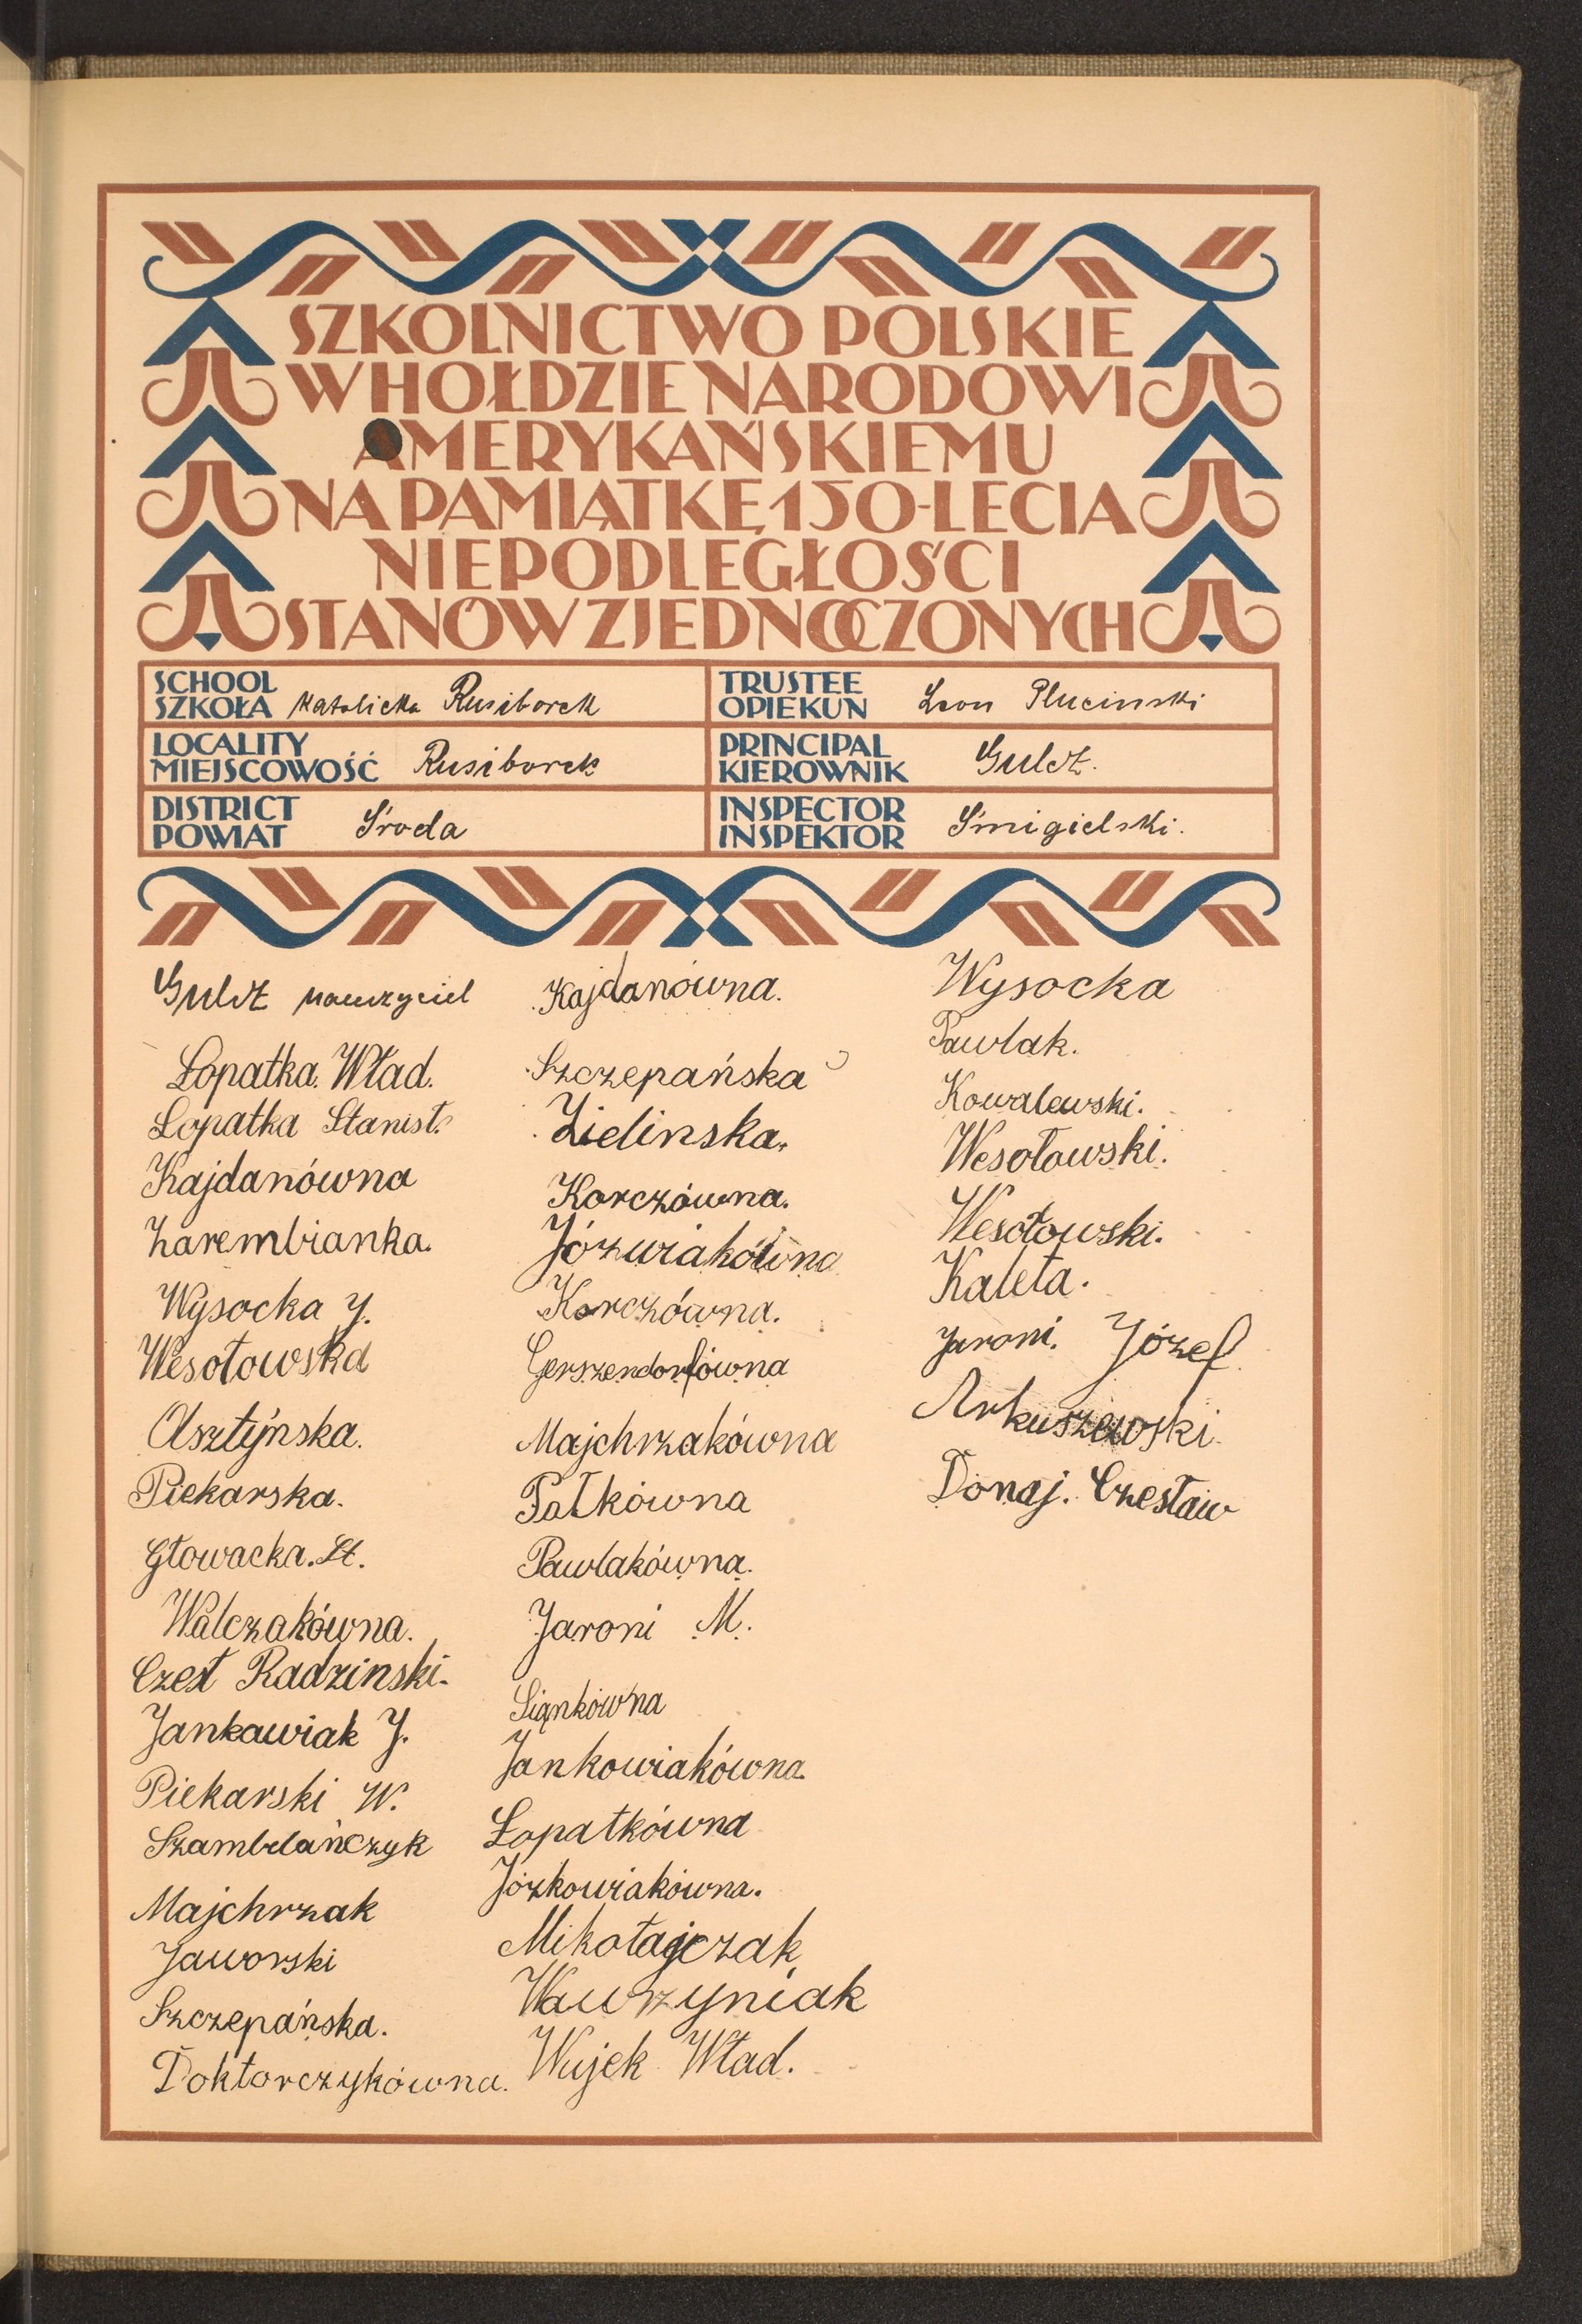 SZKOLNICTWO POLSKIE
W HOŁDZIE NARODOWI
AMERYKAŃSKIEMU
NA PAMIĄTKĘ 150-LECIA
NIEPODLEGŁOŚCI
STANÓW ZJEDNOCZONYCH
SCHOOL
SZKOŁA Katolicka Rusiborek
TRUSTEE
OPIEKUN Leon Plucinski
LOCALITY
MIEJSCOWOŚĆ Rusiborek
PRINCIPAL
KIEROWNIK Gulcz.
DISTRICT
POWIAT Środa
INSPECTOR
INSPEKTOR Śmigielski.
Gulcz nauczyciel
Łopatka. Wład.
Łopatka Stanisł.
Kajdanówna
Zarembianka.
Wysocka J.
Wesołowska
Olsztyńska.
Piekarska.
Głowacka. St.
Walczakówna.
Czesł Radzinski.
Jankawiak J.
Piekarski W.
Szambelańczyk
Majchrzak
Jaworski
Szczepańska.
Doktorczykówna.
Kajdanówna.
Szczepańska
Zielinska.
Korczówna.
Józwiakówna
Korczówna.
Gerszendorfówna
Majchrzakówna
Pałkówna
Pawlakówna.
Jaroni M.
Siąnkówna
Jankowiakówna.
Łopatkówna
Józkowiakówna.
Mikołajczak
Wawrzyniak
Wujek Wład.
Wysocka
Pawlak.
Kowalewski.
Wesołowski.
Wesołowski.
Kaleta.
Jaroni. Józef
Arkuszewski.
Donaj. Czesław